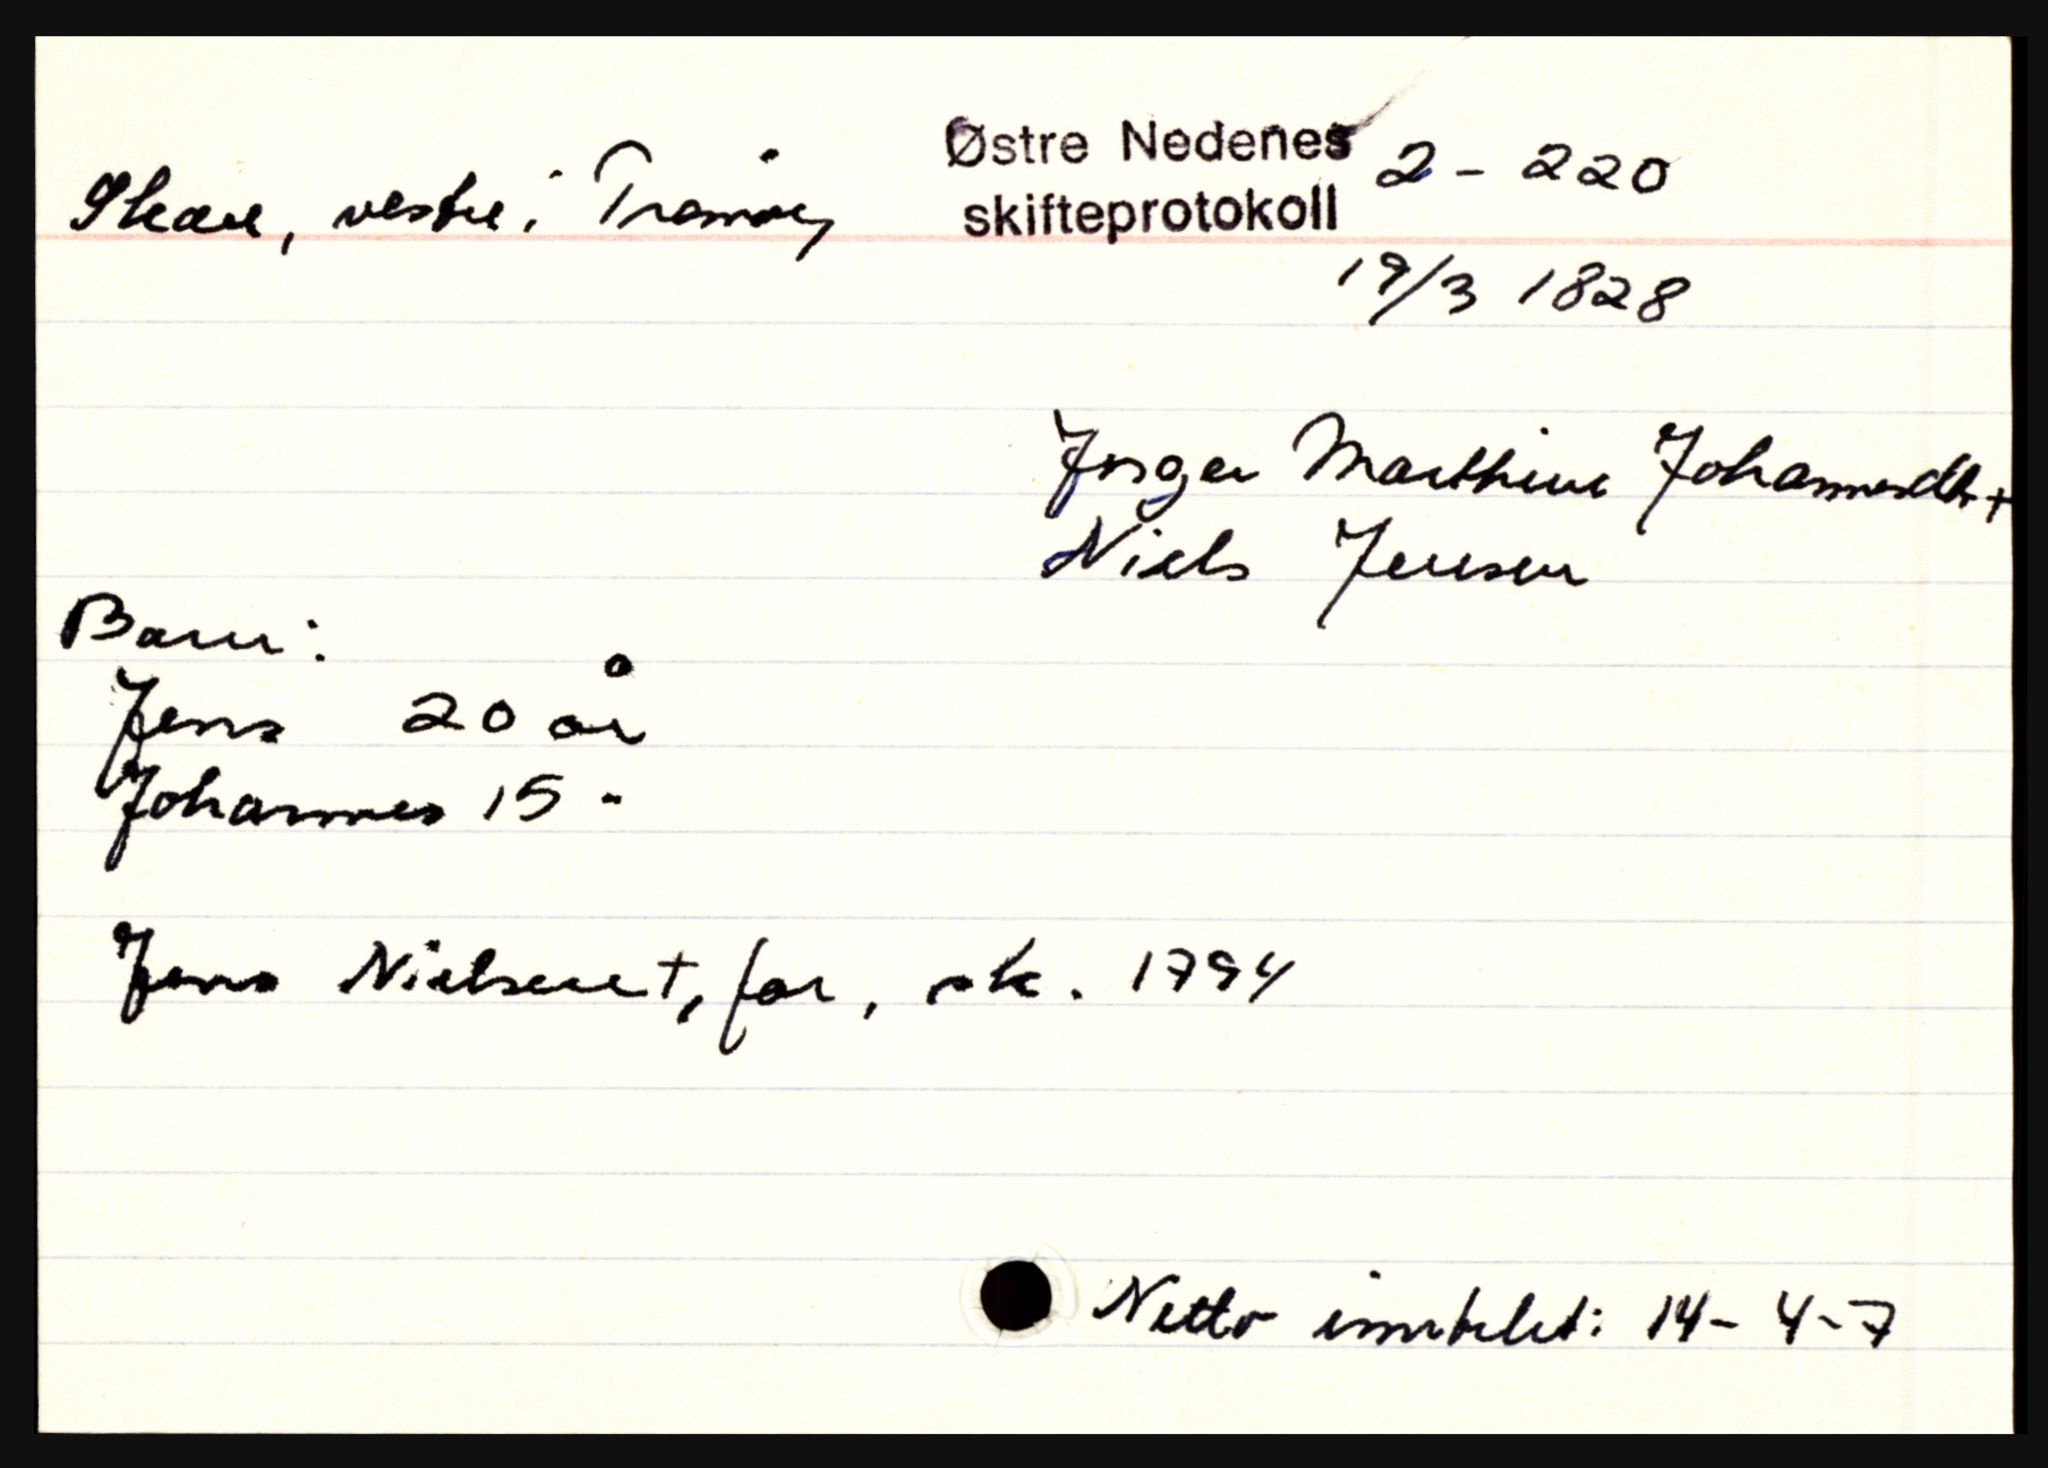 Østre Nedenes 2 - 220
Skare, vestre i Tromøy skifteprotokoll
19/3 1828
Inger Marthine Johannesdtr +
Niels Jensen
Barn:
Jens 20 år
Johannes 15 -
Jens Nielsen +, far, sk. 1794
Netto innbelet: 14 - 4 - 7